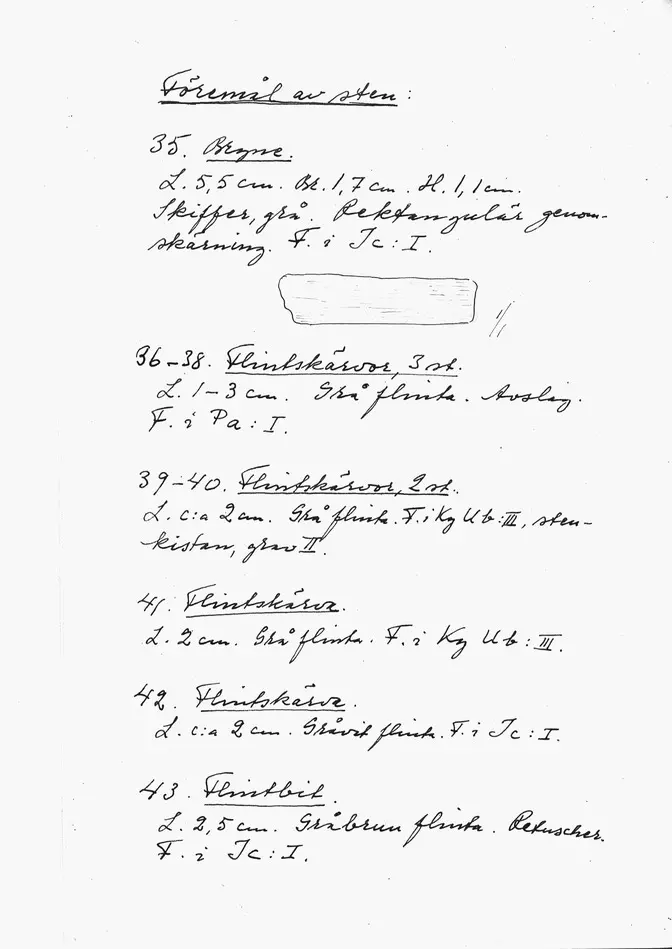 Föremål av sten:
35. Bryne.
L. 5,5 cm. Br. 1,7 cm. H. 1,1 cm.
Skiffer, grå. Rektangulär genom-
skärning. F. i Ic: I.
1/1
36-38. Flintskärvor, 3 st.
L. 1-3 cm. Grå flinta. Avslag.
F. i Pa: I.
39-40. Flintskärvor, 2 st.
L. c:a 2 cm. Grå flinta. F. i Kg Ub: III, sten-
kistan, grav II.
41. Flintskärva.
L. 2 cm. Grå flinta. F. i Kg Ub: III.
42. Flintskärva.
L. c:a 2 cm. Gråvit flinta. F. i Ic: I.
43. Flintbit.
L. 2,5 cm. Gråbrun flinta. Retuscher.
F. i Ic: I.